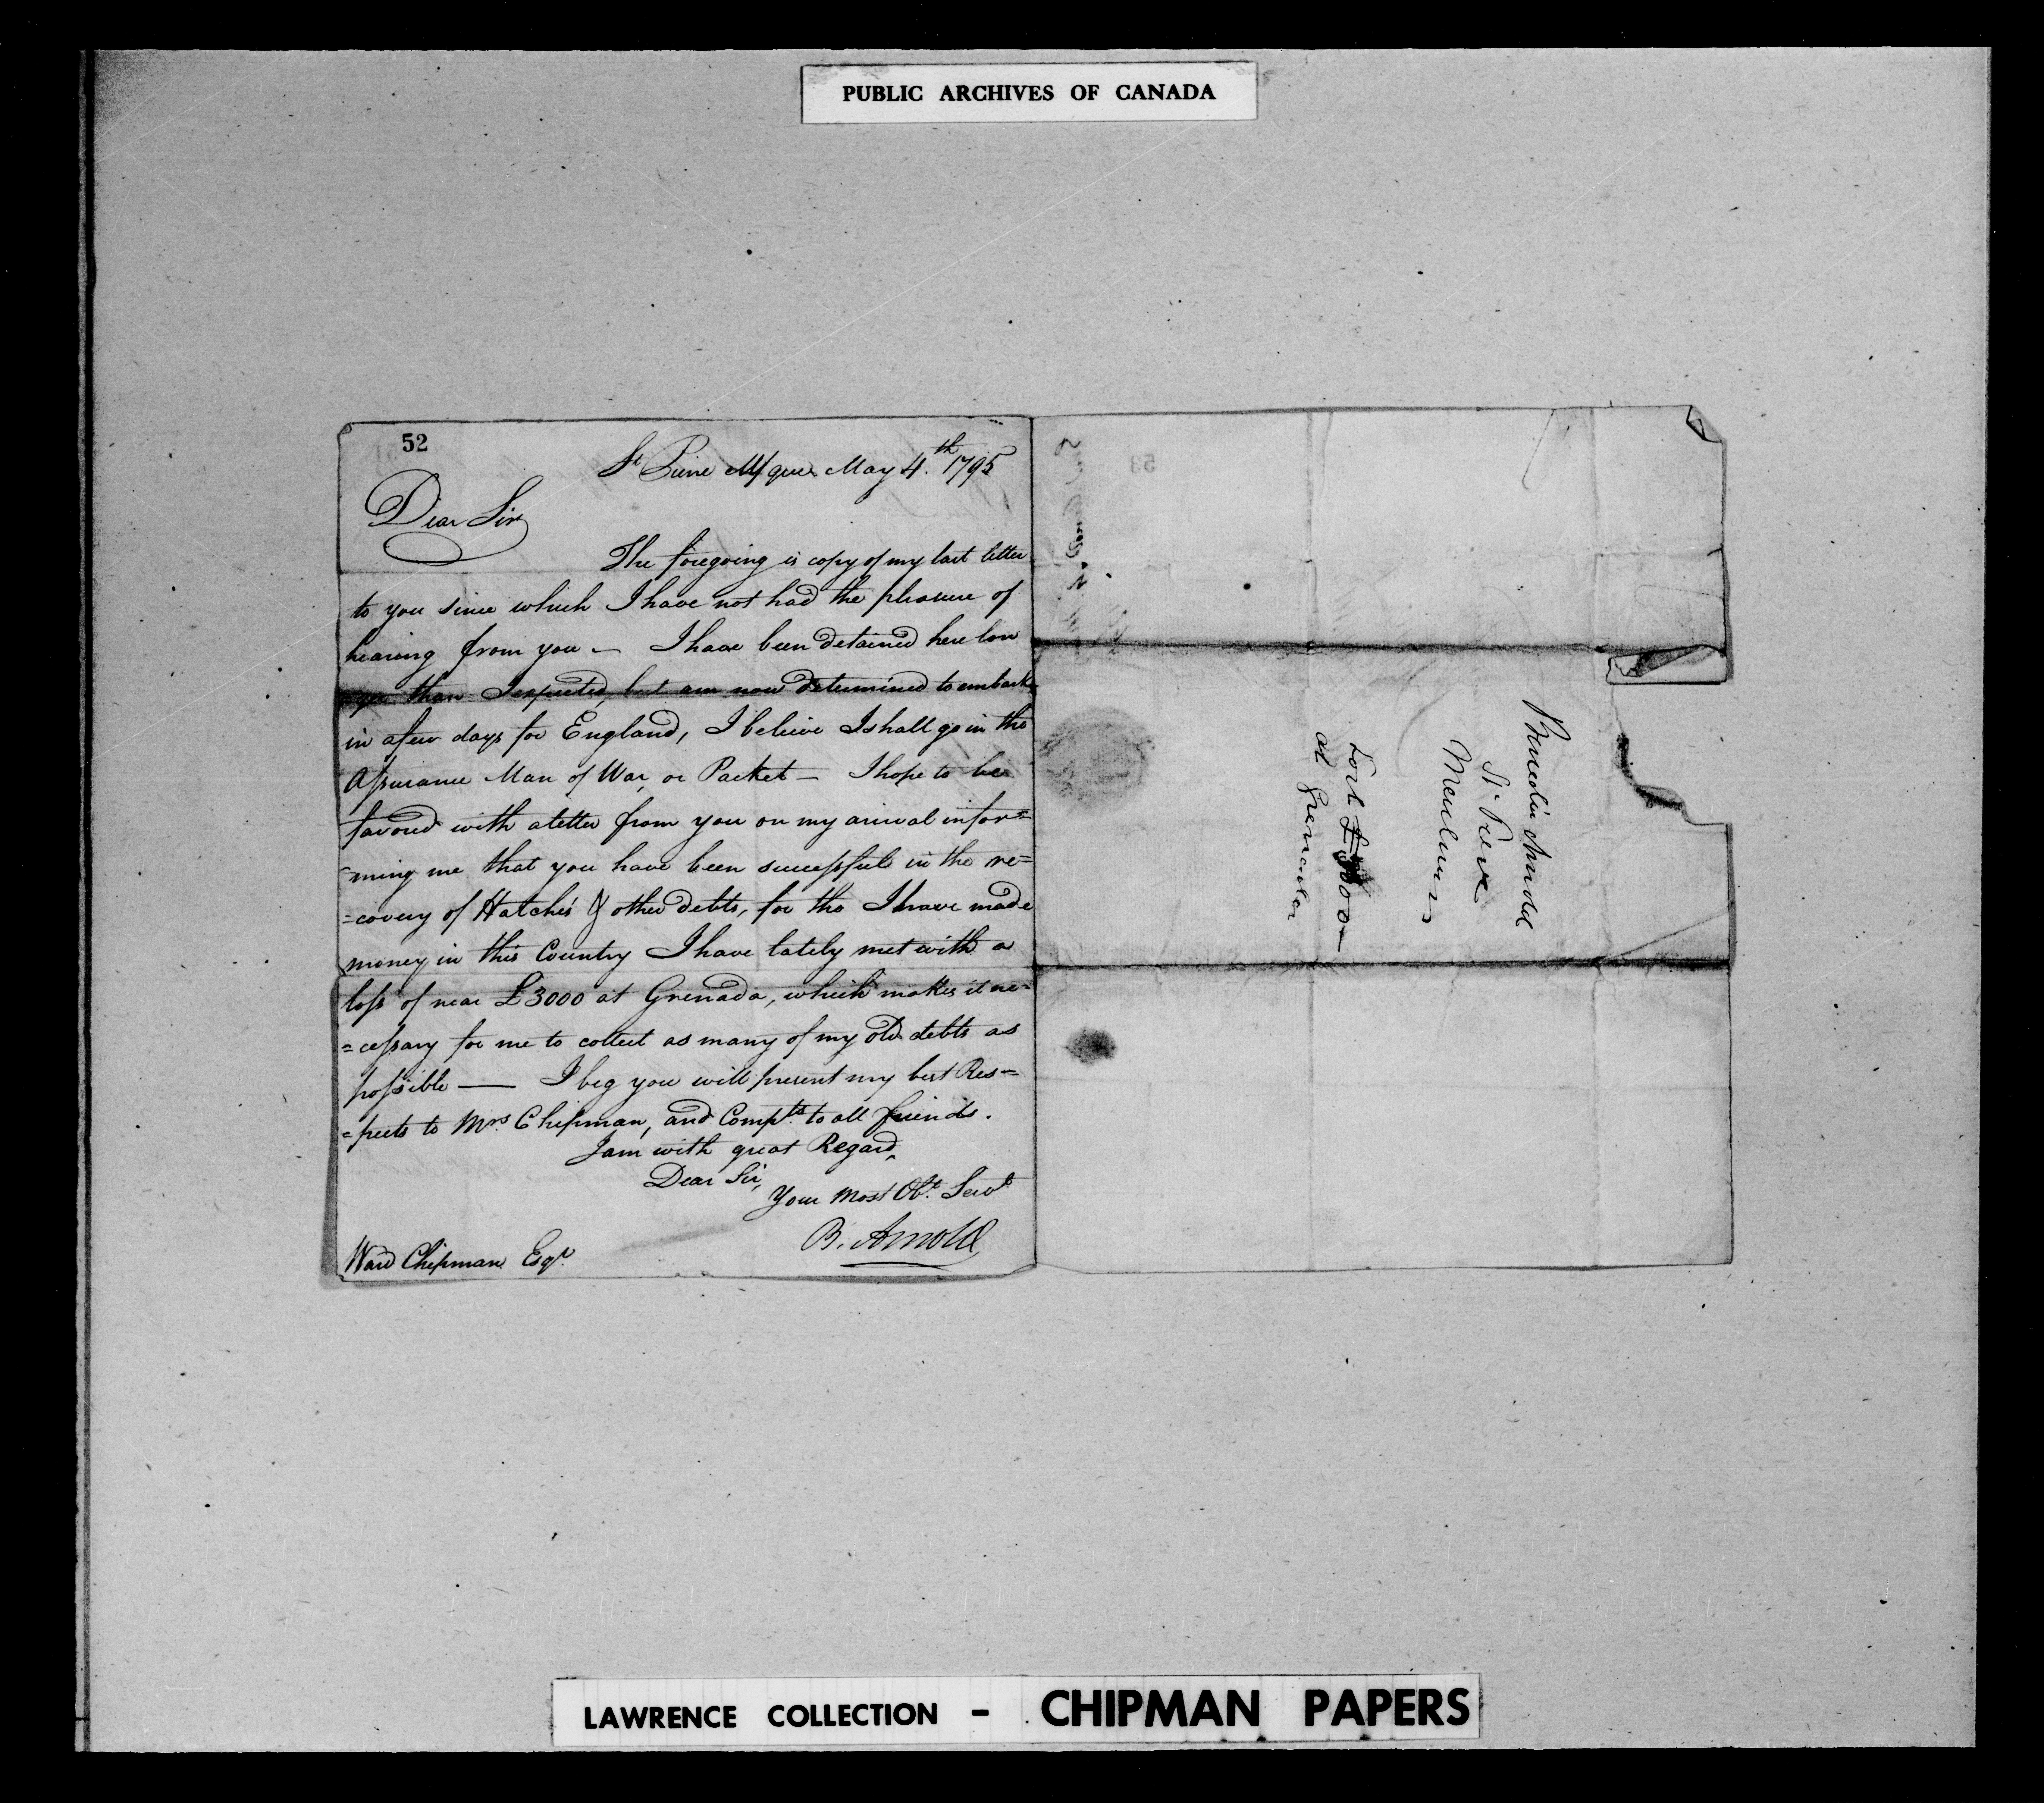 PUBLIC ARCHIVES OF CANADA
52
St Piere M/que May 4.th 1795
Dear Sir
The foregoing is copy of my last letter
to you since which I have not had the pleasure of
hearing from you — I have been detained here lon
ger than I expected, but am now determined to embark
in a few days for England, I believe I shall go in the
Assurance Man of War, or Packet — I hope to be
favored with a letter from you on my arival infor=
=ming me that you have been successful in the re=
=covery of Hatche's & other debts, for tho I have made
money in this Country I have lately met with a
loss of near £3000 at Grenada, which makes it ne=
=cessary for me to collect as many of my old debts as
possible — I beg you will present my best Res=
=pects to Mrs. Chipman, and Compts. to all friends.
I am with great Regard,
Dear Sir,
Your Most Obt. Servt
B. Arnold
Ward Chipman Esqr.
53
Benedict Arnold
St. Piere
Lost £3000
at Grenada
LAWRENCE COLLECTION - CHIPMAN PAPERS